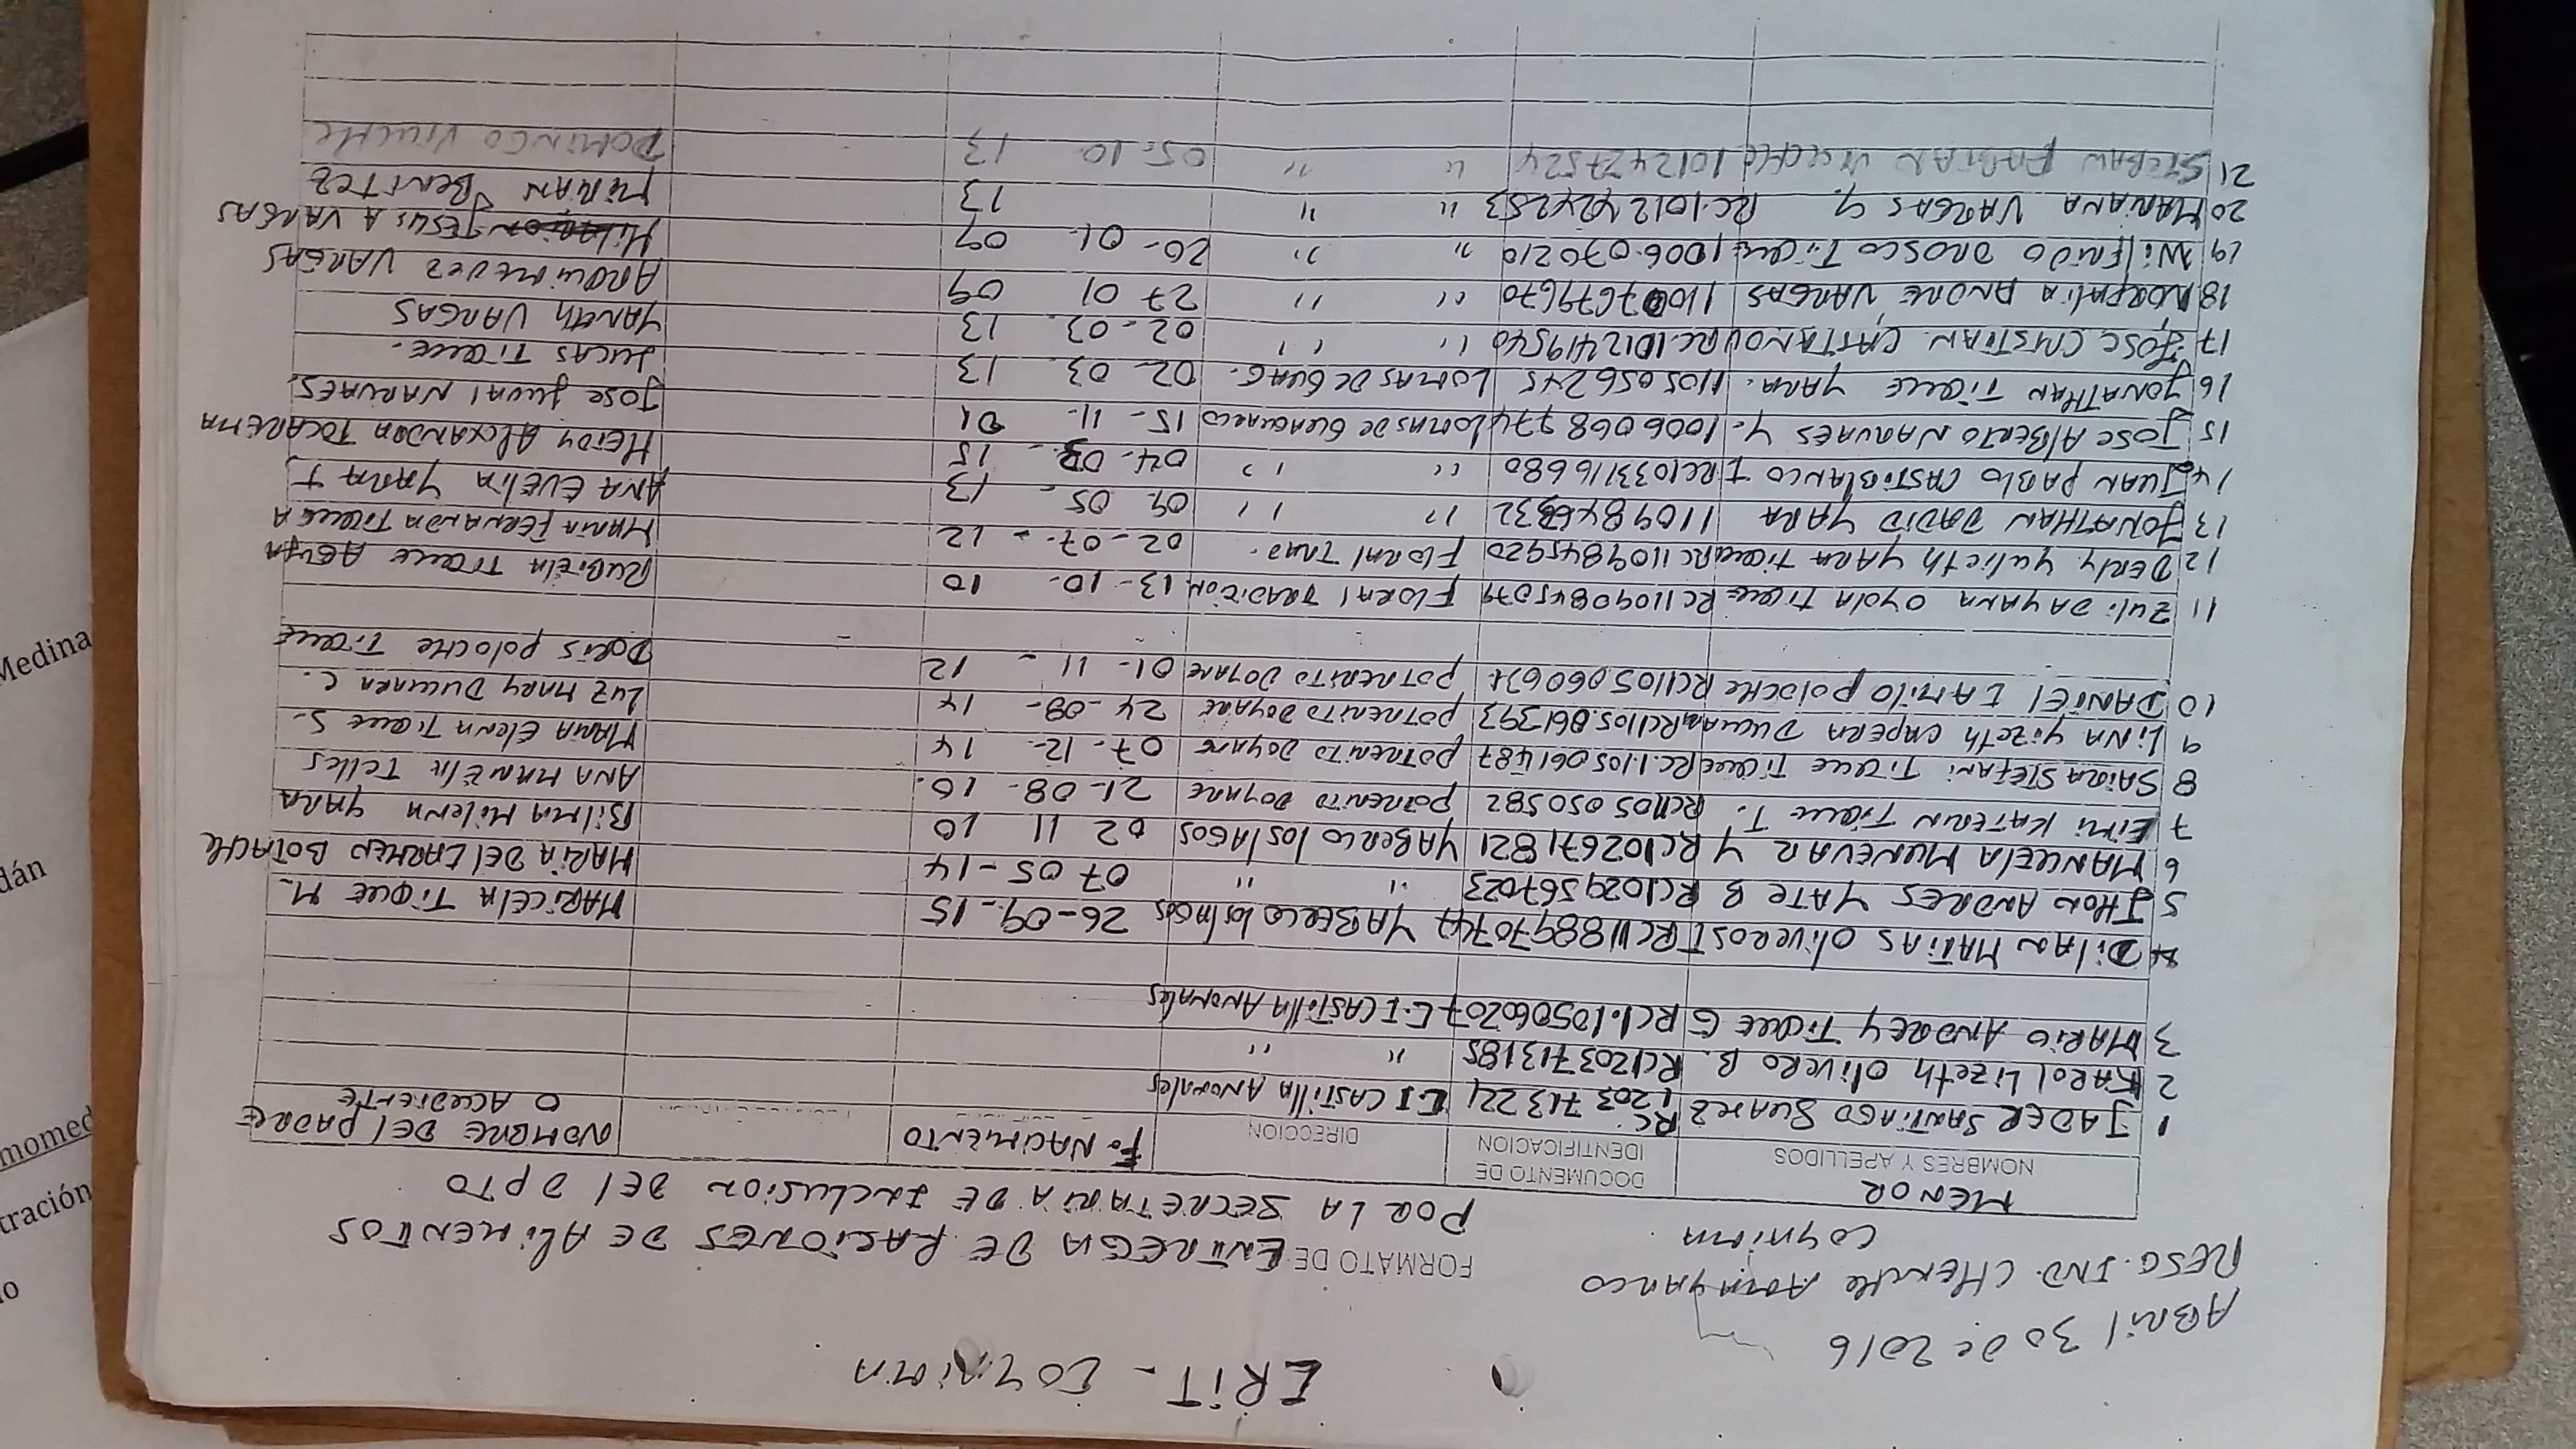 CRIT - COYAIMA
ABRIL 30 DE 2016
RESG. IND. CHENCHE AGUAYARCO
COYAIMA
FORMATO DE ENTREGA DE RACIONES DE ALIMENTOS
POR LA SECRETARIA DE INCLUSION DEL DPTO
MENOR
NOMBRES Y APELLIDOS DOCUMENTO DE IDENTIFICACION DIRECCION F. NACIMIENTO NOMBRE DEL PADRE O ACUDIENTE
1 JADER SANTIAGO SUAREZ RC 1203713224 C.I CASTILLA ANGOSTURAS
2 KAROL LIZETH OLIVERO B. RC1203713185 " "
3 MARIO ANDREY TIQUE G RC1.105060207 C.I CASTILLA
4 DILAN MATIAS OLIVEROS T RC1188970747 YABERCO LOS LAGOS 26-09-15 MARICELA TIQUE M.
5 JHON ANDRES YATE B RC1029567023 " " 07 05-14 MARIA DEL CARMEN BOTACHE
6 MARICELA MUNEVAR Y RC102671821 YABERCO LOS LAGOS 02 11 10 BILMA MILENA YARA
7 EIMI KATERIN TIQUE T. RC1105050582 POTRERITO DOYARE 21-08-10. ANA MANELIA TELLES
8 SAIRA STEFANI TIQUE TIQUE RC.1.105061487 POTRERITO DOYARE 07-12- 14 MARIA ELENA TIQUE S.
9 LINA YIZETH CAPERA DUCUARA RC1105.061393 POTRERITO DOYARE 24-08- 14 LUZ MARY DUCUARA C.
10 DANIEL CAMILO POLOCHE RC1105060631 POTRERITO DOYARE 01-11- 12 DORIS POLOCHE TIQUE
11 ZULI DAYANA OYOLA TIQUE RC1109845079 FLORAL TRADICION 13-10- 10 RUBIELA TIQUE
12 DERLY YULIETH YARA TIQUE RC1109845920 FLORAL TRAD. 02-07- 12 MARIA FERNANDA TIQUE A
13 JONATHAN DAVID YARA 1109846332 " " 09. 05- 13 ANA EVELIA YARA T
14 JUAN PABLO CASTIBLANCO T RC1033116680 " " 04-03- 15 HEIDY ALEXANDRA TOCAREMA
15 JOSE ALBERTO NARVAES Y. 1006068774 LOMAS DE GUAGUARCO 15-11- 01 JOSE JUVAL NARVAES.
16 JONATHAN TIQUE YARA. 1105056245 LOMAS DE GUAG. 02-03. 13 LUCAS TIQUE.
17 JOSE CRISTIAN CASTAÑO V RC.1012419540 " " 02-03. 13 YANETH VARGAS
18 NORFALIA ANDRE VARGAS 1107679670 " " 27 01 09 ARQUIMEDEZ VARGAS
19 WILFRIDO OROSCO TIQUE 1006.070210 " " 20-01. 09 JESUS A VARGAS
20 MARIANA VARGAS Y. RC.1012424253 " " 13 MIRIAN BENITEZ
21 STEBAN FABIAN VIUCHE 1012427524 " " 05-10- 13 DOMINGO VIUCHE
Medina
dán
momed
tración
lo